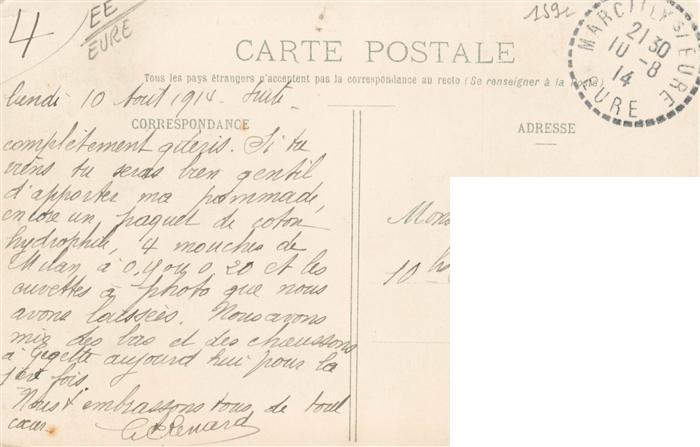 4
EE
EURE
159
CARTE POSTALE
Tous les pays étrangers n'acceptent pas la correspondance au recto (Se renseigner à la Poste)
MARCILLY S/EURE
21 30
10 -8
14
EURE
Lundi 10 Aout 1914. Suite
CORRESPONDANCE
ADRESSE
complètement guéris. Si tu
viens tu seras bien gentil
d'apporter ma pommade,
encore un paquet de coton
hydrophile, 4 mouches de
Milan à 0, ou 0,20 et les
cuvettes à photo que nous
avons laissées. Nous avons
mis des bas et des chaussons
à Gégette aujourd'hui pour la
1ère fois
Nous t'embrassons tous de tout
cœur
Renard
Mons
10